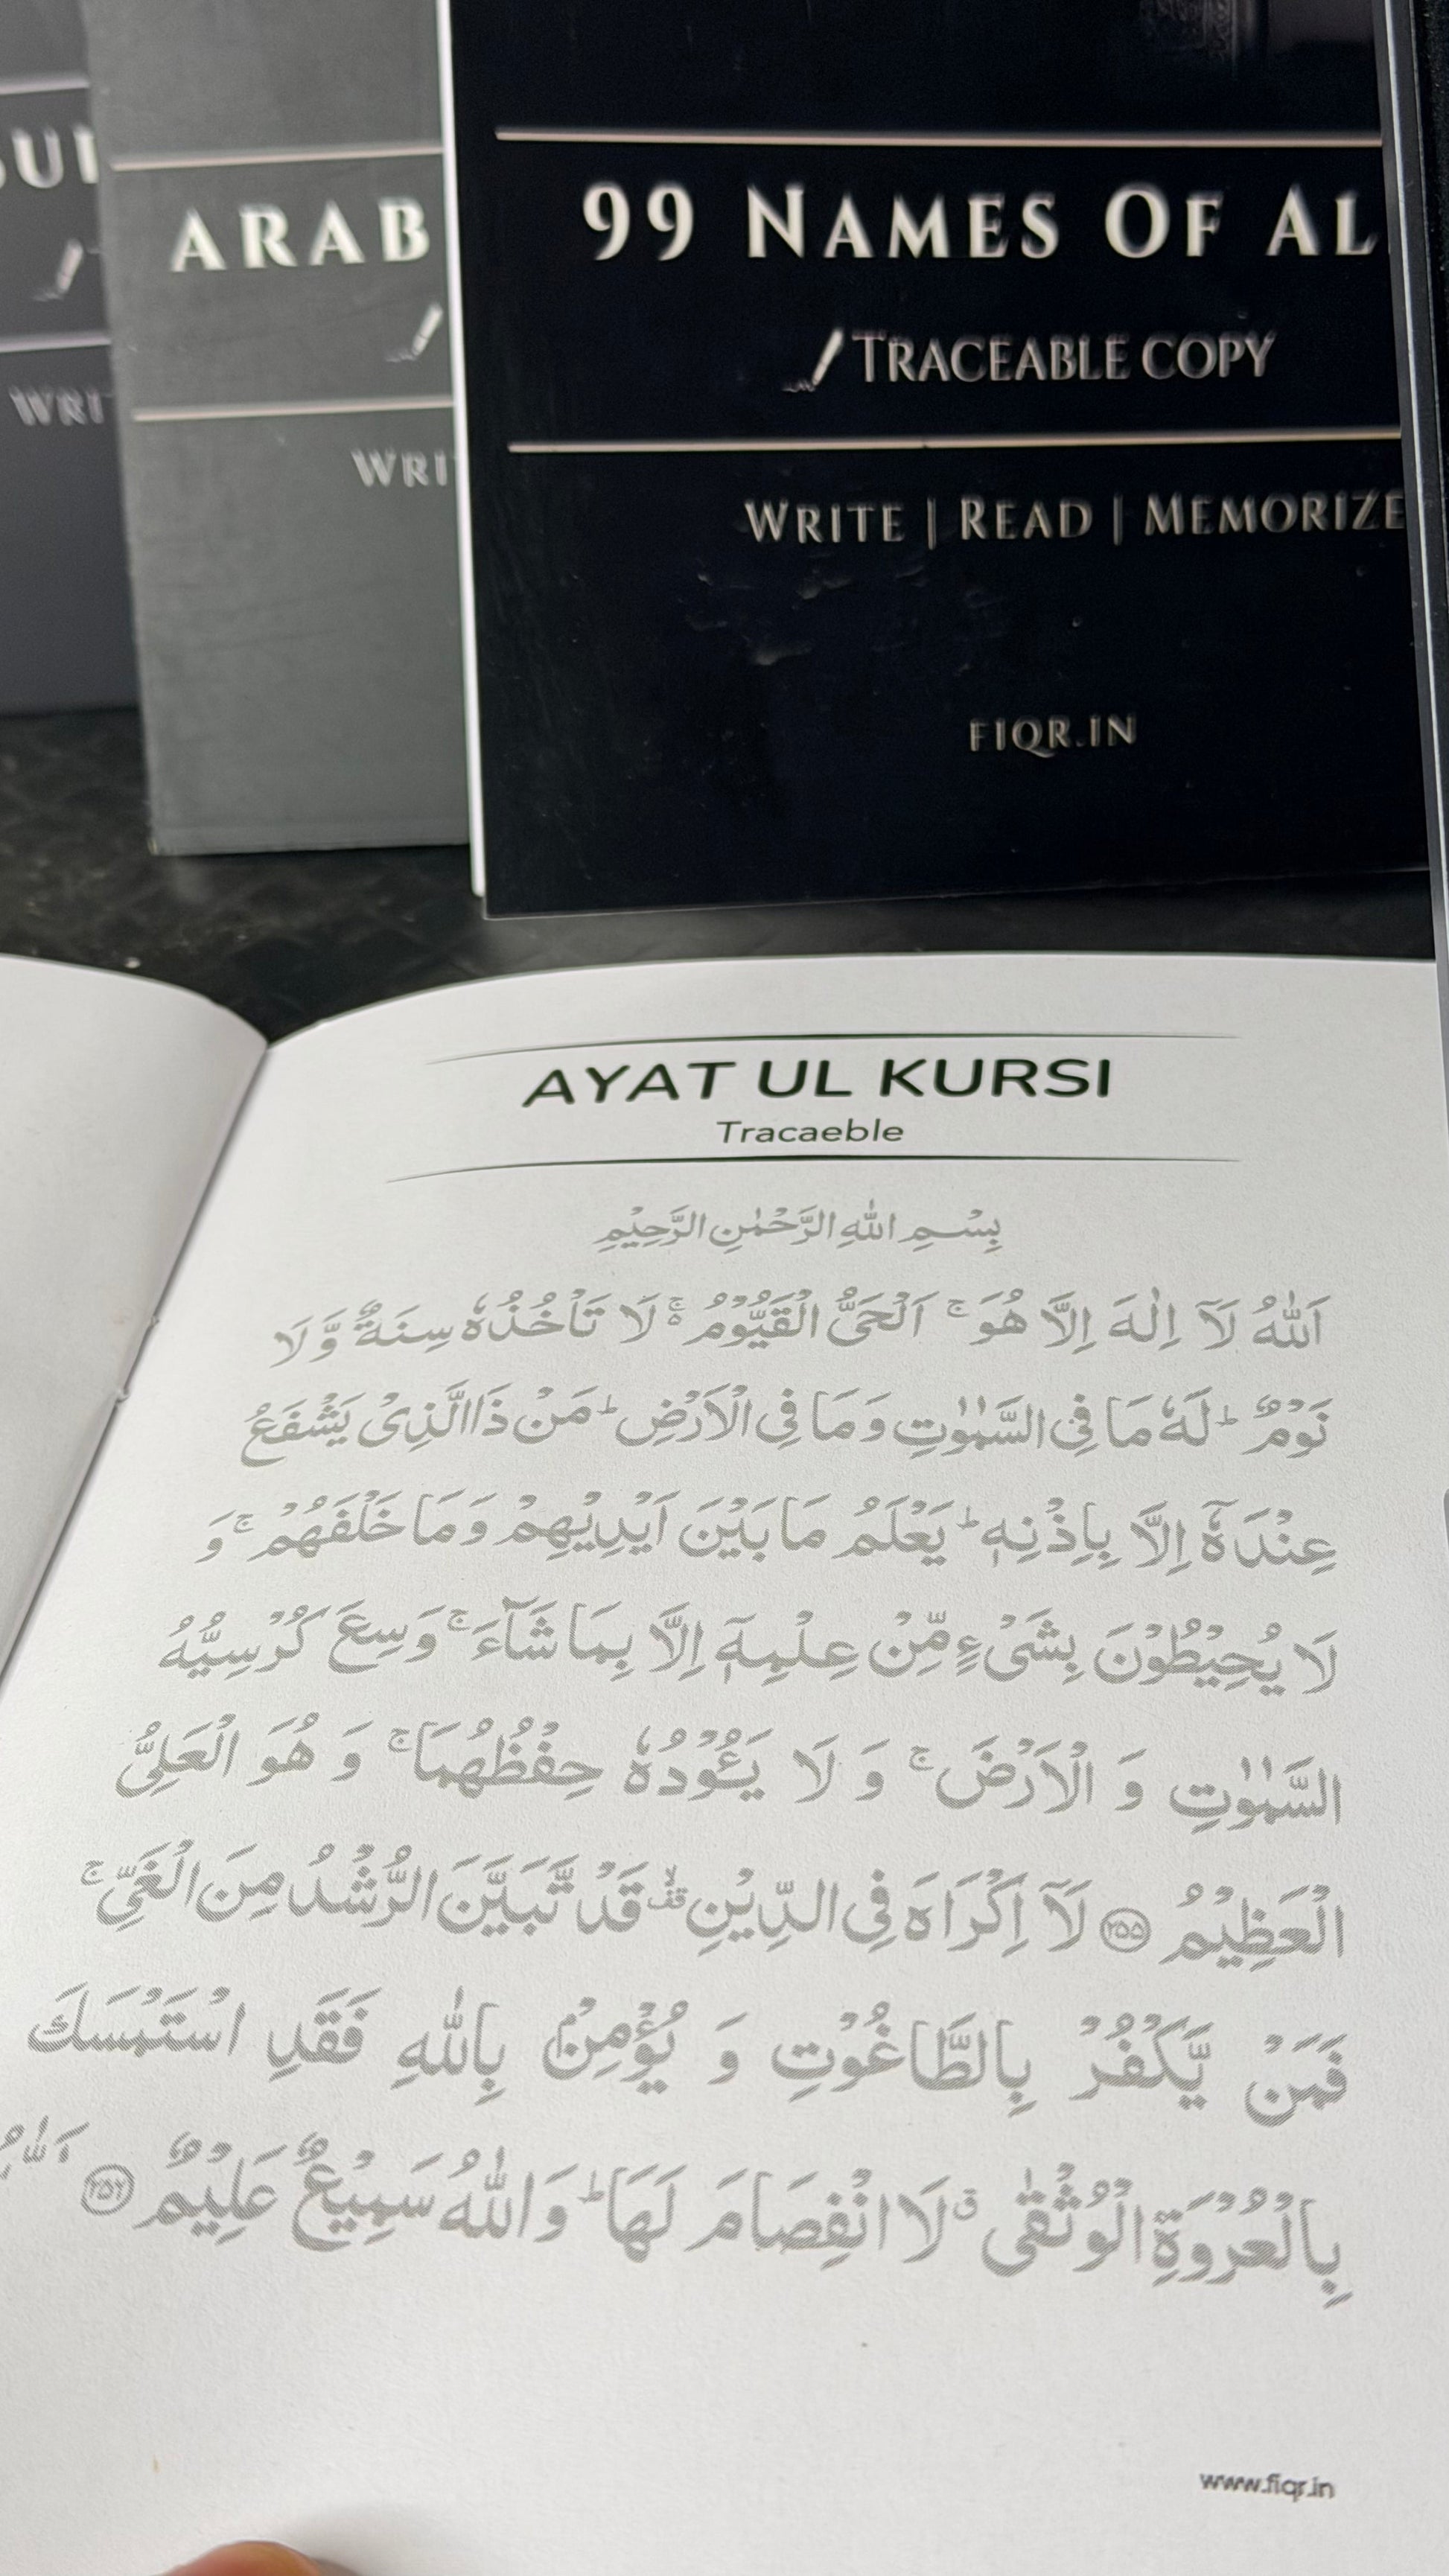 ARAB
WRI
99 NAMES OF AL
TRACEABLE COPY
WRITE | READ | MEMORIZE
FIQR.IN
AYAT UL KURSI
Tracaeble
بِسْمِ اللهِ الرَّحْمٰنِ الرَّحِيْمِ
اَللّٰهُ لَاۤ اِلٰهَ اِلَّا هُوَ ۚ اَلْحَیُّ الْقَیُّوْمُ ۚ۬ لَا تَاْخُذُهٗ سِنَةٌ وَّ لَا
نَوْمٌ ؕ لَهٗ مَا فِی السَّمٰوٰتِ وَ مَا فِی الْاَرْضِ ؕ مَنْ ذَا الَّذِیْ یَشْفَعُ
عِنْدَهٗۤ اِلَّا بِاِذْنِهٖ ؕ یَعْلَمُ مَا بَیْنَ اَیْدِیْهِمْ وَ مَا خَلْفَهُمْ ۚ وَ
لَا یُحِیْطُوْنَ بِشَیْءٍ مِّنْ عِلْمِهٖۤ اِلَّا بِمَا شَآءَ ۚ وَسِعَ كُرْسِیُّهُ
السَّمٰوٰتِ وَ الْاَرْضَ ۚ وَ لَا یَـُٔوْدُهٗ حِفْظُهُمَا ۚ وَ هُوَ الْعَلِیُّ
الْعَظِیْمُ ﴿۲۵۵﴾ لَاۤ اِكْرَاهَ فِی الدِّیْنِ ۙ۫ قَدْ تَّبَیَّنَ الرُّشْدُ مِنَ الْغَیِّ ۚ
فَمَنْ یَّكْفُرْ بِالطَّاغُوْتِ وَ یُؤْمِنْۢ بِاللّٰهِ فَقَدِ اسْتَمْسَكَ
بِالْعُرْوَةِ الْوُثْقٰی ۗ لَا انْفِصَامَ لَهَا ؕ وَ اللّٰهُ سَمِیْعٌ عَلِیْمٌ ﴿۲۵۶﴾
www.fiqr.in